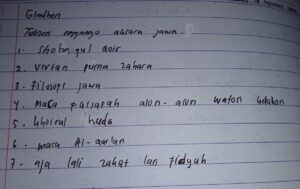 Gladhen
Tulisen nganggo aksara jawa.
1. Shobaqul qoir
2. Vivian purna zahara
3. Filosofi jawa
4. maca pasarah alon-alon waton kelakon
5. khoirul huda
6. maca Al-qur'an
7. aja lali zakat lan fidyah